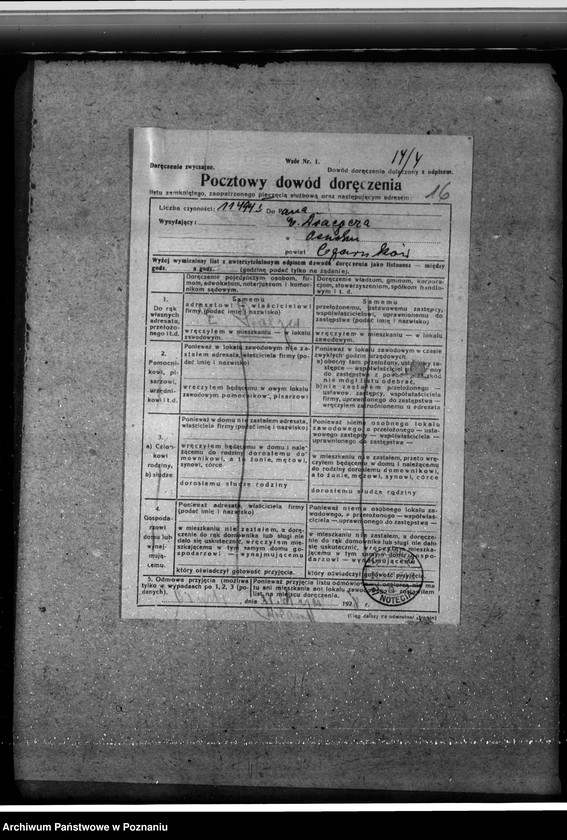 14/4
Wzór Nr. 1.
Doręczenie zwyczajne.
Dowód doręczenia dołączony z odpisem.
Pocztowy dowód doręczenia
16
listu zamkniętego, zaopatrzonego pieczęcią służbową oraz następującym adresem:
Liczba czynności: Do
Wysyłający:
w
powiat Czarnków
Wyżej wymieniony list z uwierzytelnionym odpisem dowodu doręczenia jako listonosz — między
godz. a godz. (godzinę podać tylko na żądanie).
Doręczenie pojedyńczym osobom, firmom, adwokatom, notarjuszom i komornikom sądowym.
Doręczenie władzom, gminom, korporacjom, stowarzyszeniom, spółkom handlowym i t. d.
1.
Do rąk własnych adresata, przełożonego i t.d.
Samemu
adresatowi — właścicielowi firmy (podać imię i nazwisko)
wręczyłem w mieszkaniu — w lokalu zawodowym.
Samemu
przełożonemu, ustawowemu zastępcy, współwłaścicielowi, uprawnionemu do zastępstwa (podać imię i nazwisko)
wręczyłem w mieszkaniu — w lokalu zawodowym.
2.
Pomocnikowi, pisarzowi, urzędnikowi i t.d.
Ponieważ w lokalu zawodowym nie zastałem adresata, właściciela firmy (podać imię i nazwisko)
wręczyłem będącemu w owym lokalu zawodowym pomocnikowi, pisarzowi
Ponieważ w lokalu zawodowym w czasie zwykłych godzin urzędowych
a) obecny tam przełożony, ustawowy zastępca — współwłaściciel
do zastępstwa z powodu przeszkód nie mógł listu odebrać,
b) nie zastałem przełożonego — ustawow. zastępcy, współwłaściciela firmy, uprawnionego do zastępstwa — wręczyłem zatrudnionemu u adresata
3.
a) Członkowi rodziny,
b) słudze
Ponieważ w domu nie zastałem adresata, właściciela firmy (podać imię i nazwisko)
wręczyłem będącemu w domu i należącemu do rodziny dorosłemu domownikowi, a to żonie, mężowi, synowi, córce
dorosłemu słudze rodziny
Ponieważ niema osobnego lokalu zawodowego a przełożonego — ustawowego zastępcy — współwłaściciela — uprawnionego do zastępstwa —
w mieszkaniu nie zastałem, przeto wręczyłem będącemu w domu i należącemu do rodziny dorosłemu domownikowi, a to żonie, mężowi, synowi, córce
dorosłemu słudze rodziny
4.
Gospodarzowi domu lub wynajmującemu.
Ponieważ adresata, właściciela firmy (podać imię i nazwisko)
w mieszkaniu nie zastałem, a doręczenie do rąk domownika lub sługi nie dało się uskutecznić, wręczyłem mieszkającemu w tym samym domu gospodarzowi — wynajmującemu
który oświadczył gotowość przyjęcia.
Ponieważ niema osobnego lokalu zawodowego, a przełożonego — współwłaściciela — uprawnionego do zastępstwa —
w mieszkaniu nie zastałem, a doręczenie do rąk domownika lub sługi nie dało się uskutecznić, wręczyłem mieszkającemu w tym samym domu gospodarzowi — wynajmującemu
który oświadczył gotowość przyjęcia.
5. Odmowa przyjęcia (możliwa tylko w wypadkach po 1, 2, 3 (podanych).
Ponieważ przyjęcia listu odmówiono
zostawiłem list na miejscu doręczenia.
, dnia 192 r.
NOTECIĄ
(Ciąg dalszy na odwrotnej stronie)
Archiwum Państwowe w Poznaniu